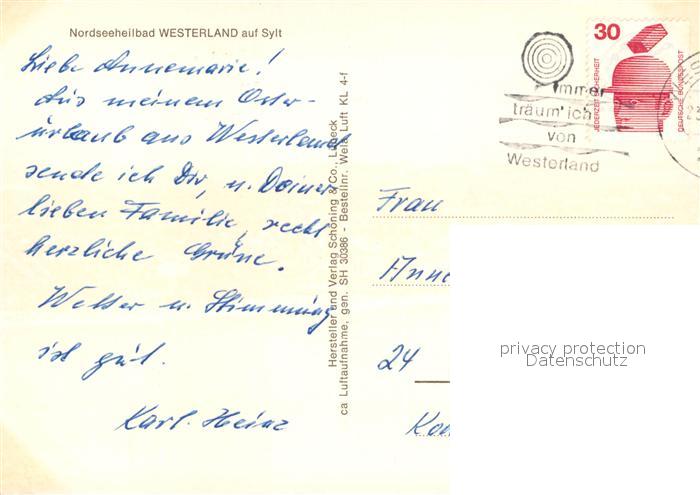 Nordseeheilbad WESTERLAND auf Sylt
Liebe Annemarie!
Aus meinem Oster-
urlaub aus Westerland
sende ich Dir, u. Deiner
lieben Familie, recht
herzliche Grüße.
Wetter u. Stimmung
ist gut.
Karl-Heinz
Hersteller und Verlag Schöning & Co., Lübeck
ca Luftaufnahme, gen. SH 30386 - Bestellnr. Wela Luft KL 4-f
Immer
träum' ich
von
Westerland
30
JEDERZEIT SICHERHEIT
DEUTSCHE BUNDESPOST
Frau
Anne
24
privacy protection
Datenschutz